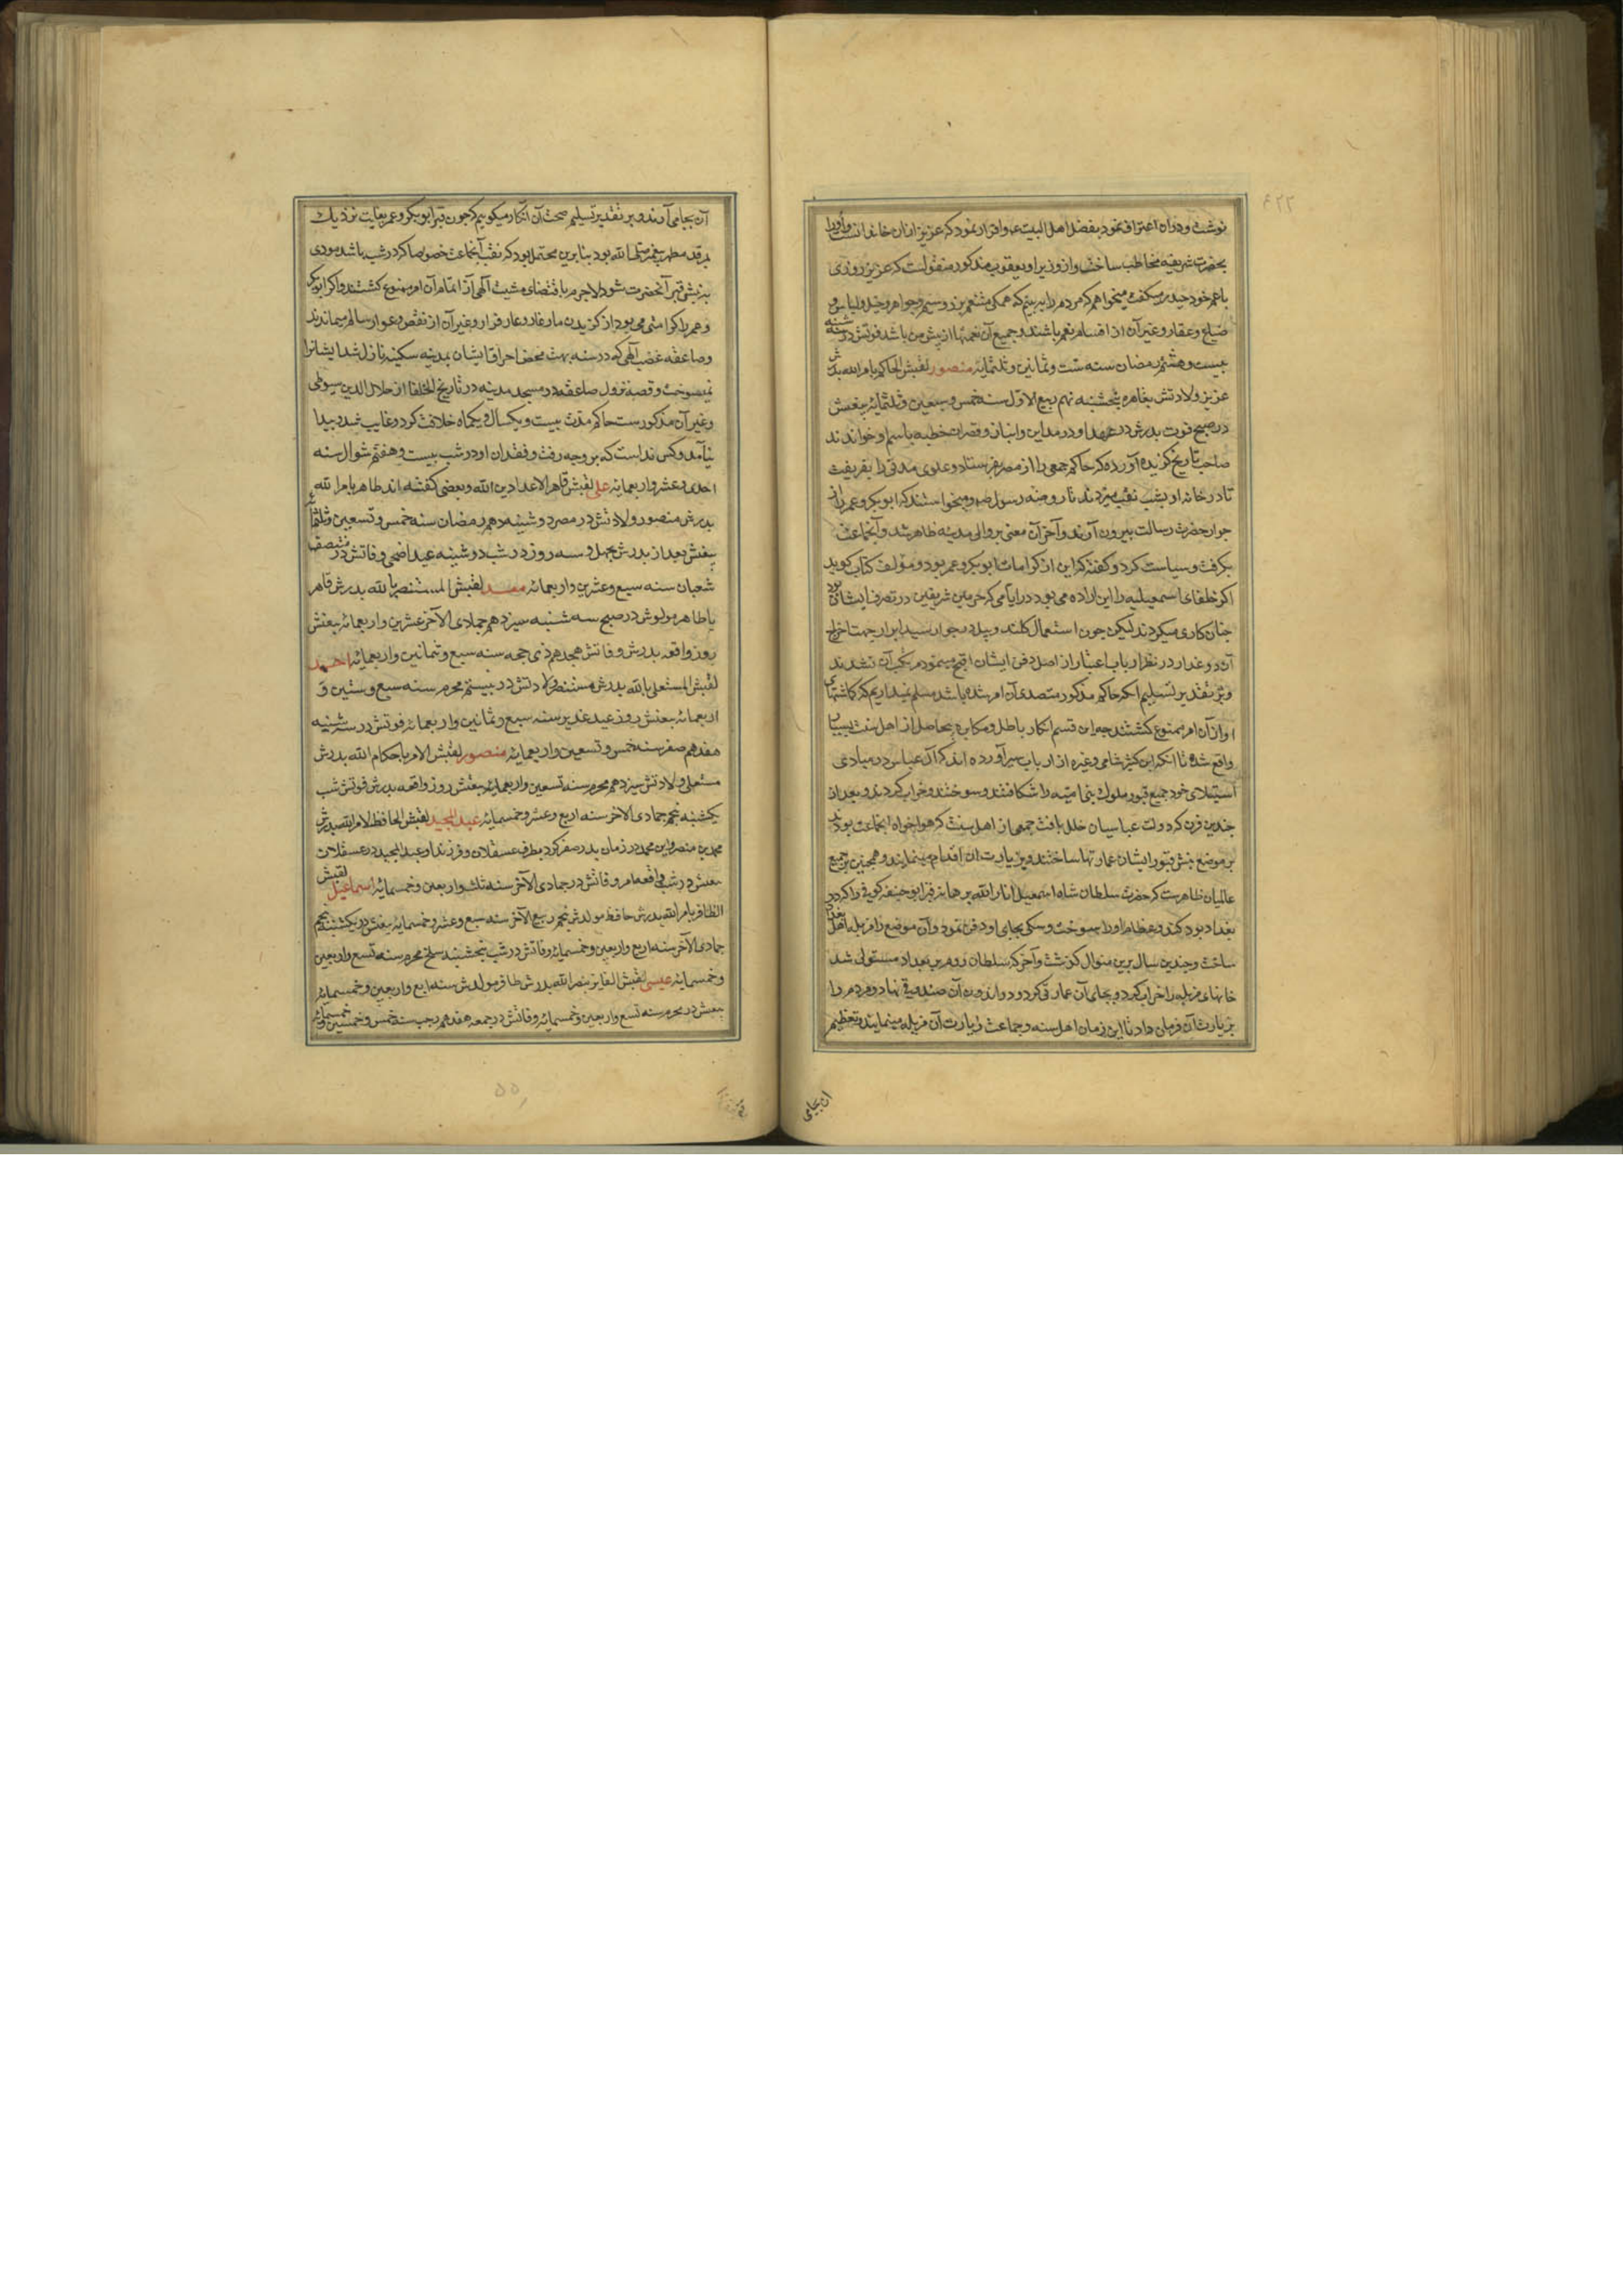 نوشت و در آن اعتراف نمود بفضل اهل البیت ع و اقرار نمود که عزیز از آن خاندانست و او را
بحضرت شریفه مخاطب ساخت و از وزیر او یعقوب مذکور منقولست که عزیز روزی
با عم خود حیدر میگفت میخواهم که مردم را به بینم که همکی متنعم بزر و سیم و جواهر و خیل و لباس و
ضیاع و عقار و غیر آن از اقسام نعم باشند و جمیع آن نعمتها از پیش من باشد فوتش در سه شنبه
بیست و هشتم رمضان سنه ست و ثمانین و ثلثمایه منصور لقبش الحاکم بامرالله پدرش
عزیز ولادتش بقاهره پنجشنبه نهم ربیع الاول سنه خمس و سبعین و ثلثمایه بیعتش
در صبح فوت پدرش در عهد او در مداین و انبار و قصران خطبه باسم او خواندند
صاحب تاریخ کزیده آورده که حاکم جمعی را از مصر فرستاد و علوی مدنی را بفریفت
تا در خانه او بشب نقب میزدند تا روضه رسول ص و میخواستند که ابو بکر و عمر را از
جوار حضرت رسالت بیرون آورند و آخر آن معنی بر والی مدینه ظاهر شد و آنجماعت
بکرفت و سیاست کرد و گفته که این از کرامات ابو بکر و عمر بود و مؤلف کتاب کوید
اکر خلفای اسمعیلیه را این اراده می بود در ایامی که حرمین شریفین در تصرف ایشان بود
چنان کاری میکردند لیکن چون استعمال کلند و بیل در جوار سید ابرار جهت اخراج
آن دو غدار در نظر ارباب اعتبار از اصل دفن ایشان اقبح مینمود مرتکب آن نشدند
و بر تقدیر تسلیم اکر حاکم مذکور متصدی آن امر شده باشد مسلم نمیداریم که کاشتهای
او از آن امر ممنوع کشتند چه این قسم انکار باطل و مکابره بیحاصل از اهل سنت بسیار
واقع شده تا آنکه ابن کثیر شامی و غیره از ارباب سیر آورده اند که آل عباس در مبادی
استیلای خود جمیع قبور ملوک بنی امیه را شکافتند و سوختند و خراب کردند و بعد از
چندین قرن که دولت عباسیان خلل یافت جمعی از اهل سنت که هواخواه آنجماعت بودند
بر موضع نبش قبور ایشان عمارتها ساختند و بزیارت آن اقدام مینمایند و همچنین بر جمیع
عالمیان ظاهرست که حضرت سلطان شاه اسمعیل انار الله برهانه قبر ابو حنیفه کوفی را که در
بغداد بود کند و عظام او را بسوخت و سکی بجای او دفن نمود و آن موضع را مزبله اهل بغداد
ساخت و چندین سال برین منوال کذشت و آخر که سلطان روم بر بغداد مستولی شد
خانهای مزبله را خراب کرد و بجای آن عمارتی کرد و در اندرون آن صندوقی نهاد و مردم را
بزیارت آن فرمان داد تا این زمان اهل سنه و جماعت زیارت آن مزبله مینمایند و تعظیم
آن بجای
آن بجا می آورند و بر تقدیر تسلیم صحت آن انکار میکوییم که چون قبر ابو بکر و عمر بغایت نزدیک
بمرقد مطهر پیغمبر صلی الله بود بنا برین محتمل بود که نقب آنجماعت خصوصا که در شب باشد مودی
بنبش قبر آنحضرت شود لاجرم باقتضای مشیت آلهی از اتمام آن امر ممنوع کشتند و اکر ابو بکر
و عمر را کرامتی می بود از کزیدن مار غار و عار فرار و غیر آن از نقص و عوار سالم میماندند
و صاعقه غضب آلهی که در سنه بهت محض احراق ایشان بمدینه سکینه نازل شد ایشانرا
نمیسوخت و قصه نزول صاعقه در مسجد مدینه در تاریخ الخلفا از جلال الدین سیوطی
و غیر آن مذکورست حاکم مدت بیست و یکسال و یکماه خلافت کرد و غایب شد و پیدا
نیامد و کس ندانست که بر چه وجه رفت و فقدان او در شب بیست و هفتم شوال سنه
احدی و عشر و اربعمایه علی لقبش قاهر لاعداء دین الله و بعضی کفته اند ظاهر بامرالله
پدرش منصور ولادتش در مصر دوشنبه دهم رمضان سنه خمس و تسعین و ثلثمائه
بیعتش بعد از پدرش بچهل و سه روز در شب دوشنبه عید اضحی وفاتش در منتصف
شعبان سنه سبع و عشرین و اربعمائه معد لقبش المستنصر بالله پدرش قاهر
یا ظاهر مولودش در صبح سه شنبه سیزدهم جمادی الآخر عشرین و اربعمائه بیعتش
روز واقعه پدرش وفاتش هجدهم ذی حجه سنه سبع و ثمانین و اربعمائه احمد
لقبش المستعلی بالله پدرش مستنصر ولادتش در بیستم محرم سنه سبع و ستین و
اربعمائه بیعتش روز عید غدیر سنه سبع و ثمانین و اربعمائه فوتش در سه شنبه
هفدهم صفر سنه خمس و تسعین و اربعمایه منصور لقبش الامر باحکام الله پدرش
مستعلی ولادتش سیزدهم محرم سنه تسعین و اربعمایه بیعتش روز واقعه پدرش فوتش شب
یکشنبه پنجم جمادی الآخر سنه اربع و عشر و خمسمایه عبد المجید لقبش الحافظ لامر الله پدرش
محمد بن منصر و این محمد در زمان پدر سفر کرد بطرف عسقلان و فرزند او عبد المجید در عسقلان
بیعتش در شب واقعه امر وفاتش در جمادی الآخر سنه ثلث و اربعین و خمسمایه اسماعیل لقبش
الظافر بامرالله پدرش حافظ مولدش پنجم ربیع الآخر سنه سبع و عشر و خمسمایه بیعتش در یکشنبه پنجم
جمادی الآخر سنه اربع و اربعین و خمسمایه وفاتش در شب پنجشنبه سلخ محرم سنه تسع و اربعین
و خمسمایه عیسی لقبش الفایز بنصرالله پدرش ظافر مولدش سنه اربع و اربعین و خمسمایه
بیعتش در محرم سنه تسع و اربعین و خمسمایه وفاتش در جمعه هفدهم رجب سنه خمس و خمسین و خمسمایه